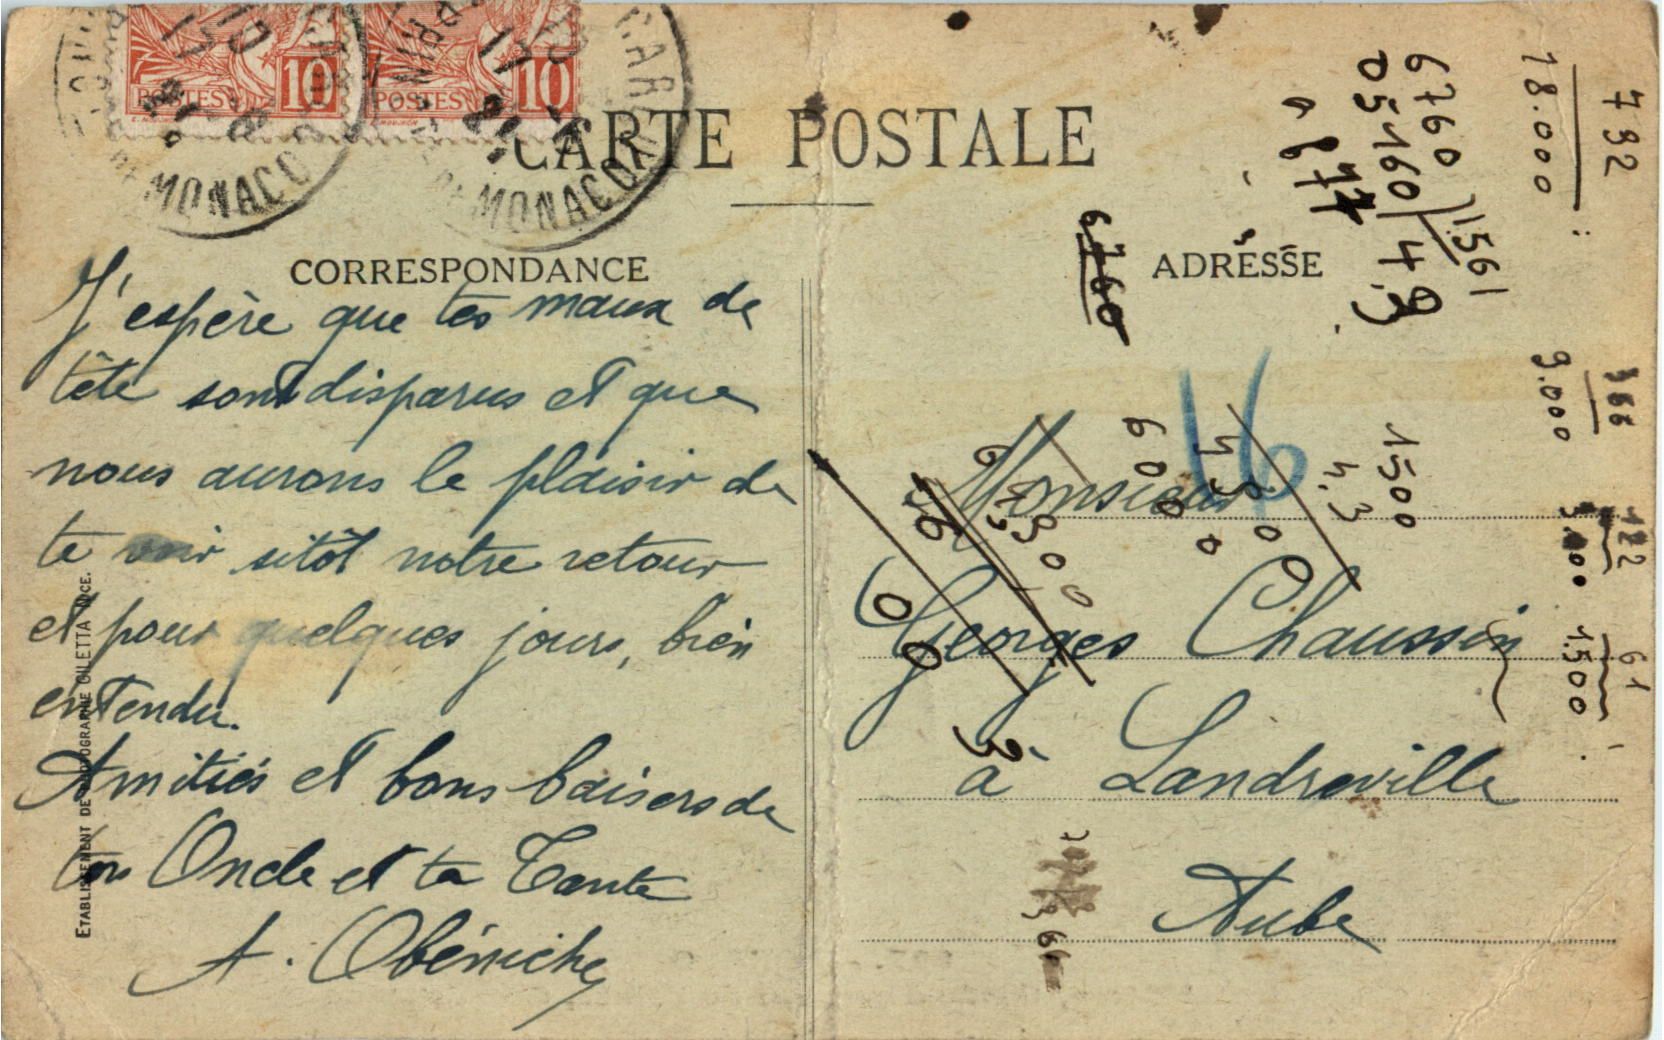 POSTES 10 POSTES 10
MONACO MONACO
CARTE POSTALE
CORRESPONDANCE
J'espère que tes maux de
tête sont disparus et que
nous aurons le plaisir de
te voir sitôt notre retour
et pour quelques jours, bien
entendu.
Amitiés et bons baisers de
ton Oncle et ta Tante
A. Obéniche
ETABLISSEMENT DE PHOTOGRAPHIE GILETTA NICE.
ADRESSE
Monsieur
Georges Chaussin
à Landreville
Aube
16
732
18.000
6760
1561
05160
49
677
6760
366
9.000
1500
4,3
4500
6000
122
61
1500